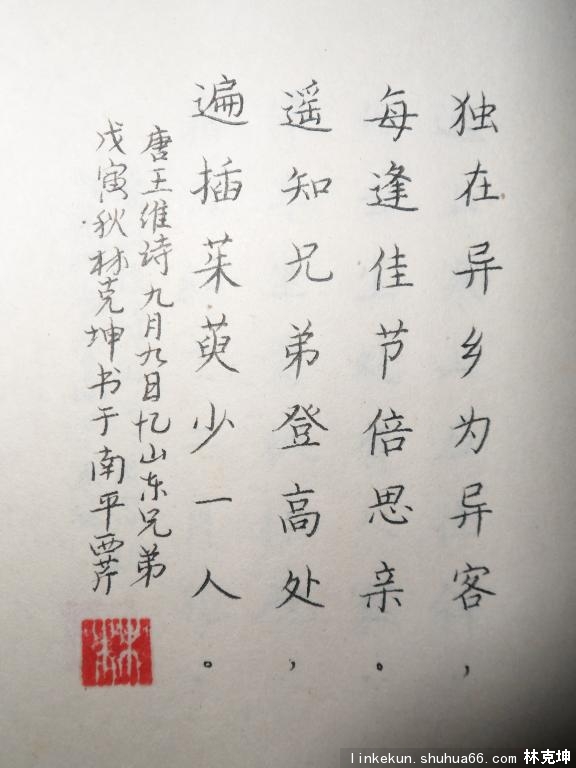 独在异乡为异客，
每逢佳节倍思亲。
遥知兄弟登高处，
遍插茱萸少一人。
唐王维诗九月九日忆山东兄弟
戊寅秋林克坤书于南平西芹
linkekun.shuhua66.com 林克坤